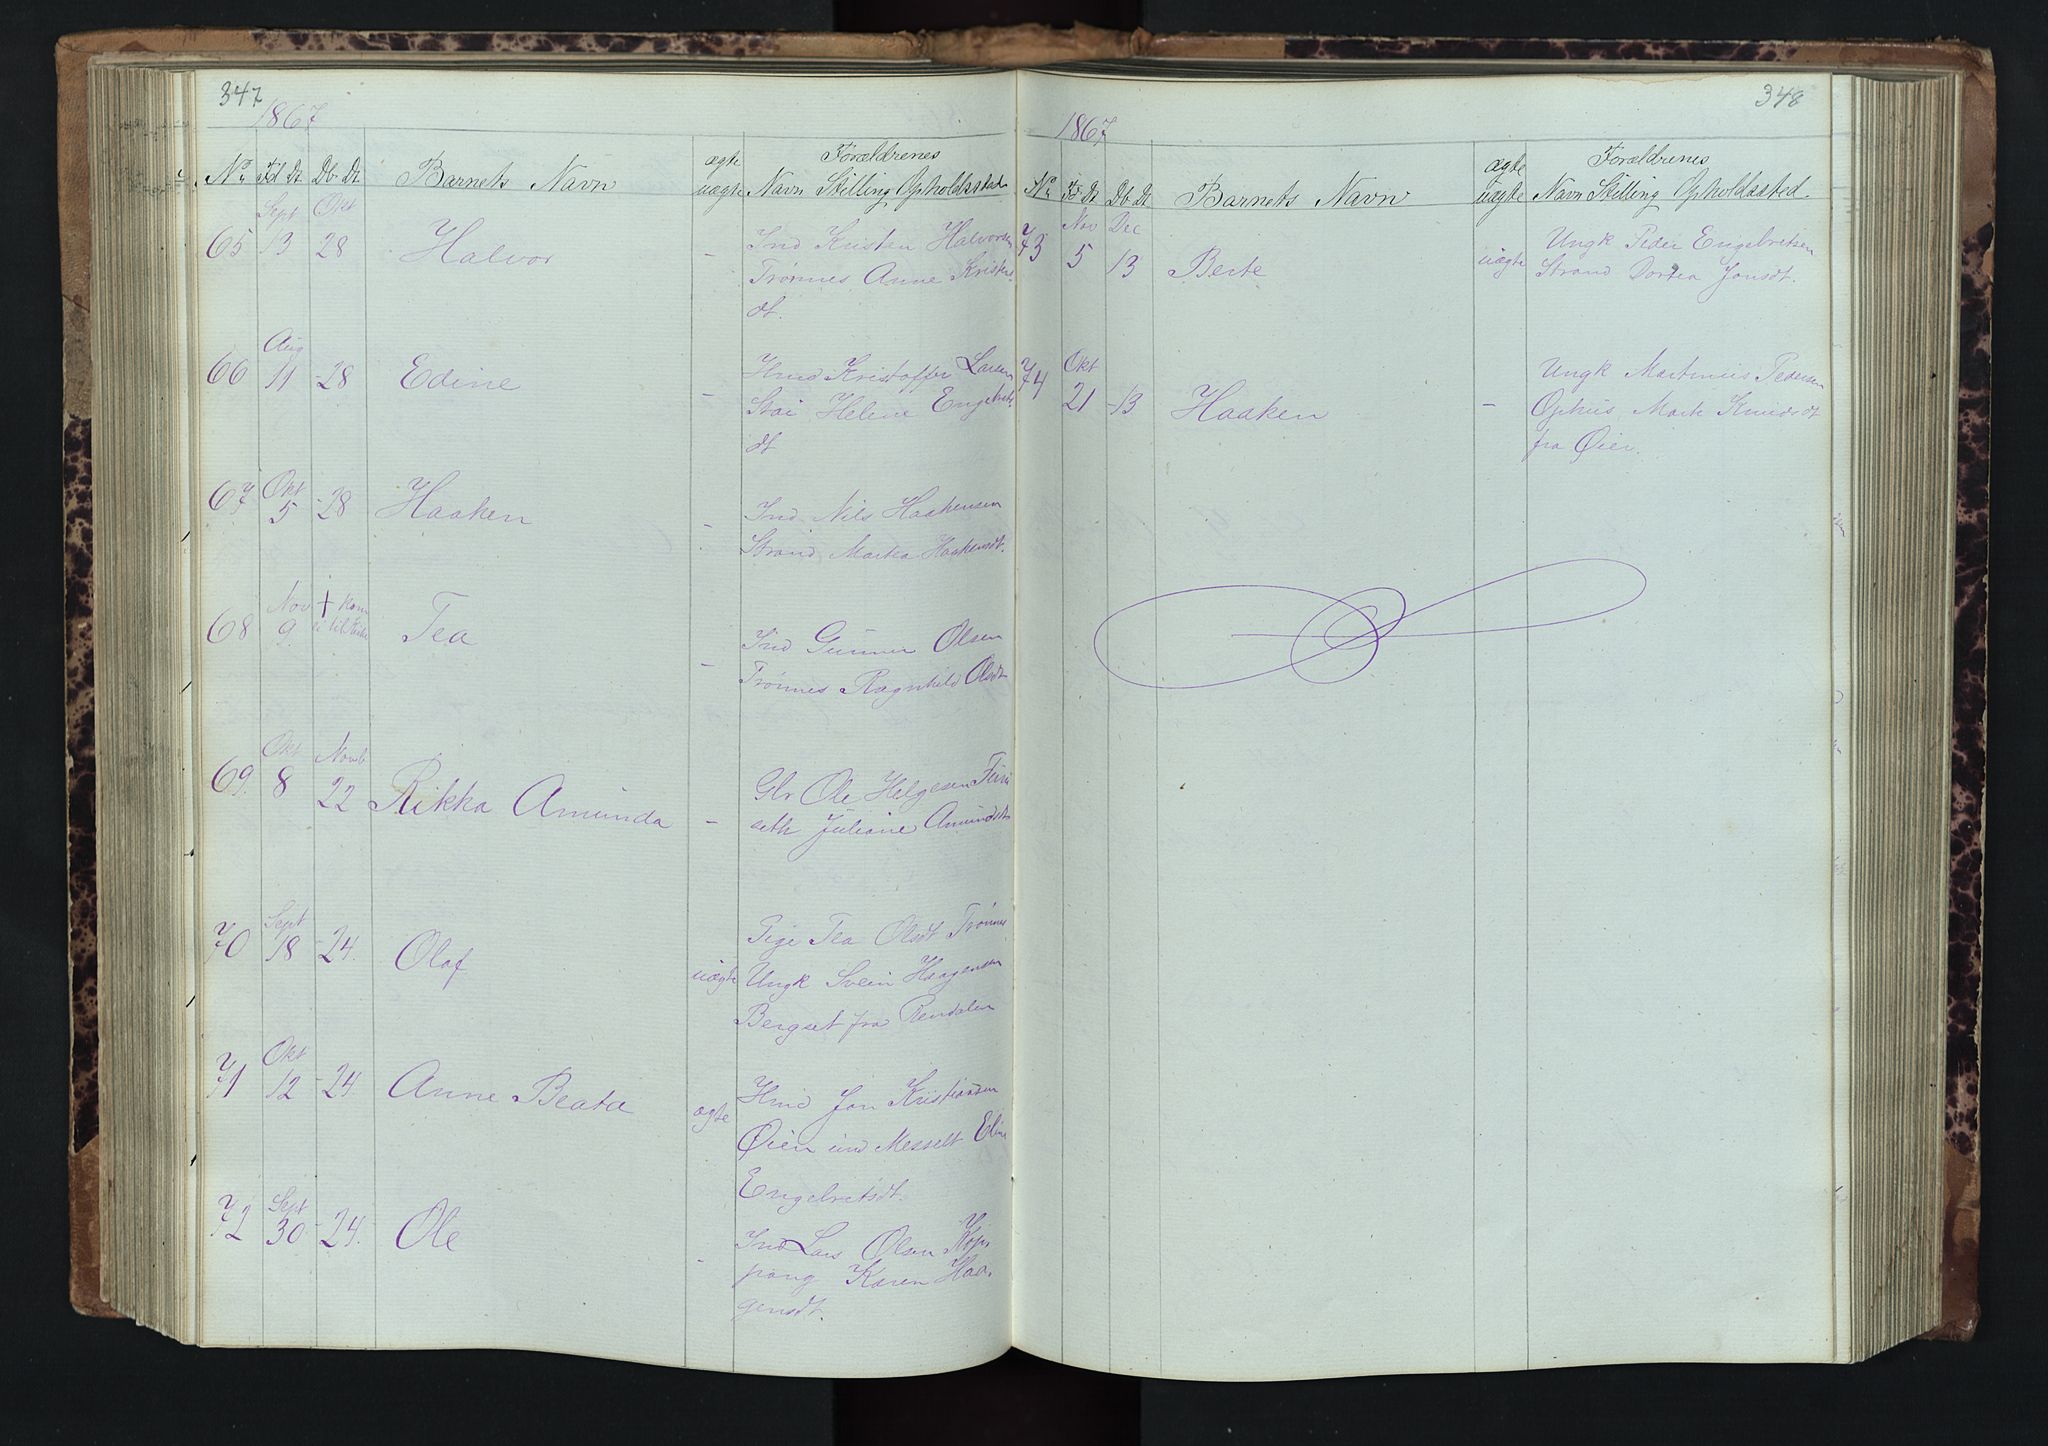 347
1867
No. Fd Dt. Db Dt. Barnets Navn ægte uægte Forældrenes
Navn Stilling Opholdssted
Sept Okt
65 13 28 Halvor - Ind Kristen Halvorsen
Trønnes Anne Kristens
dt.
Aug
66 11 -28 Edine - Hmd Kristoffer Larsen
Stai Helene Engebrets
dt
67 Okt
5 -28 Haaken - Ind Nils Haakensen
Strand Martea Haakensdt.
68 Nov
9 † kom
ei til Kirke Tea - Ind Gunner Olsen
Trønnes Ragnhild Olsdt
Okt Novb
69. 8 22 Rikka Amunda - Glr Ole Helgesen
seth Juliane Amundsdt
Sept
70 18 -24. Olaf uægte Pige Tea Olsdt Trønnes
Ungk Svein Haagensen
Bergset fra Rendalen
Okt
71 12 -24 Anne Beata ægte Hmd Jon Kristiansen
Øien und Messelt Eline
Engebretsdt.
Sept
72 30 -24. Ole - Ind Lars Olsen Kop-
pang Karen Haa-
gensdt.
348
1867
No. Fd Dt Db Dt Barnets Navn ægte uægte Forældrenes
Navn Stilling Opholdssted.
Nov Dec
73 5 13 Berte uægte Ungk Peder Engebretsen
Strand Dortea Jonsdt.
Okt
74 21 -13 Haaken - Ungk Martinus Pedersen
Ophus, Marte Knudsdt
fra Øier.